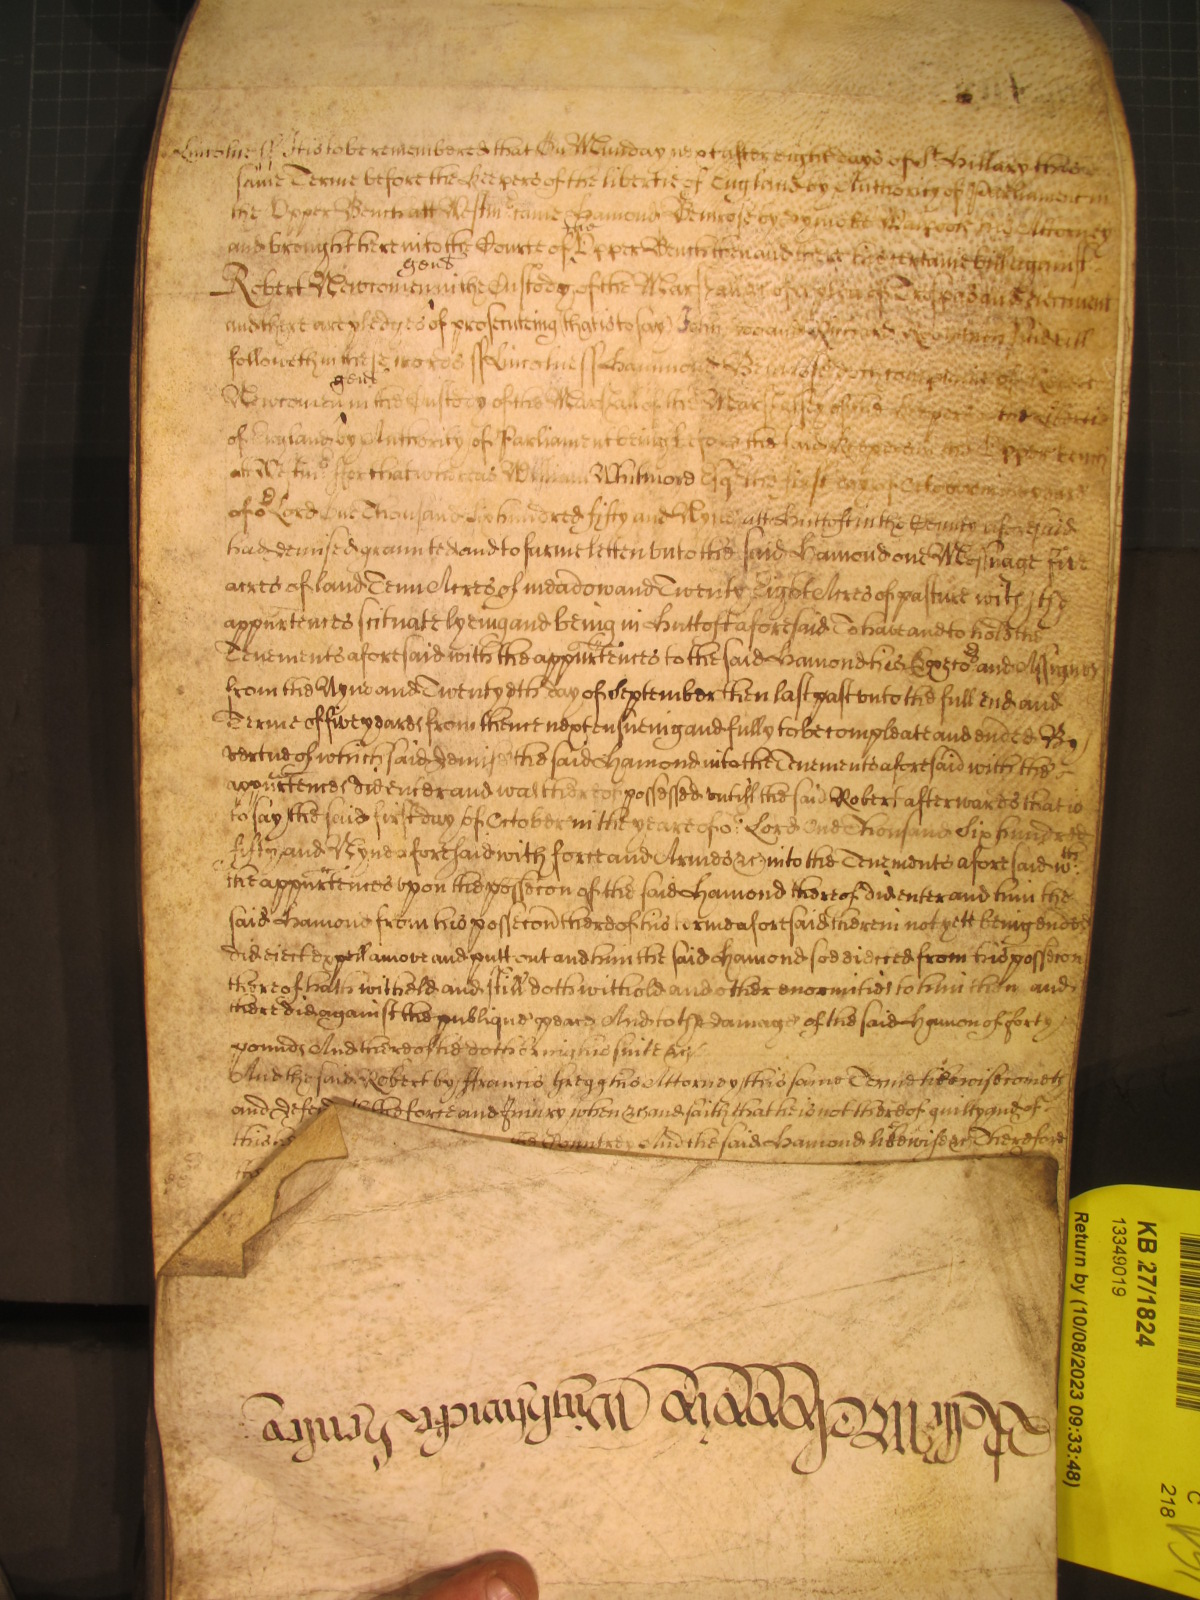 Lincolne ss It is to be remembred that On Munday next after eight dayes of St Hillary this
same Terme before the Keepers of the libertie of England by Authority of Parliament in
the Upper Bench att Westmr came Hamond Bewrose by his Attorney
and brought here into the Course of the Upper Bench then and there his certaine bill against
Robert Newcomen gent in the Custody of the Marshall of a plea of Trespas and Ejectment
and there are pledges of prosecuteing that is to say John Doo and Richard Roo which said bill
followeth in these words ss Lincolne ss Hammond doth complaine of Robert
Newcomen gent in the Custody of the Marshall of the Marshalsey of the Keepers of the libertie
of England by Authority of Parliament being before the said Keepers in the Upper Bench
att Westmr For that whereas William Whitmord Esqr the first day of October in the yeare
of or Lord One Thousand Six hundred fifty and Nyne att Huttoft in the County aforesaid
had demised graunted and to farme letten unto the said Hamond one Messuage five
acres of land Tenn Acres of meadow and Twenty Eight Acres of pasture with the
appurtences scituate lyeing and being in Huttoft aforesaid To have and to hold the
Tenements aforesaid with the appurtences to the said Hamond his Exectors and Assignes
from the Nyne and Twentyeth day of September then last past unto the full end and
Terme of five yeares from thence next ensueing and fully to be compleate and ended By
vertue of which said demise the said Hamond into the Tenements aforesaid with the
appurtences did enter and was thereof possessed untill the said Robert afterwards that is
to say the said first day of October in the yeare of or Lord One Thousand Six hundred
fifty and Nyne aforesaid with force and Armes &c into the Tenements aforesaid wth
the appurtences upon the possecon of the said Hamond thereof did enter and him the
said Hamond from his possecon thereof his terme aforesaid therein not yett being ended
did eject expell amove and putt out and him the said Hamond soe ejected from his possecon
thereof hath witheld and still doth withold and other enormities to him then and
there did against the publique peace And to the damage of the said Hamon of forty
pounds And thereof he doth bring his suite &c
And the said Robert by Francis Gregg his Attorney this same Terme likewise cometh
and defen the force and Injury when &c and saith that he is not thereof guilty and of
this he the Countrey And the said Hamond likewise &c Therefore
KB 27/1824
13349019
Return by (10/08/2023 09:33:48)
C
218